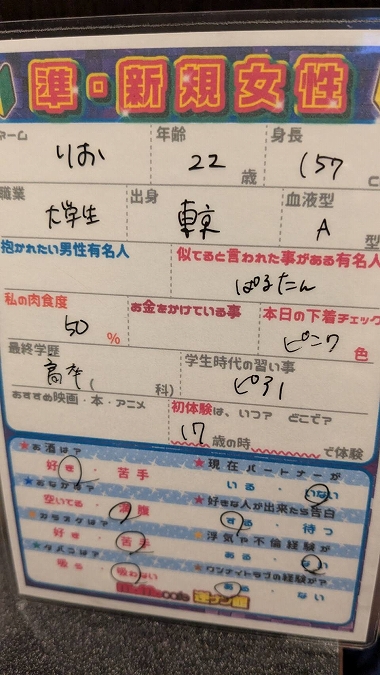 準・新規女性
ーム りお
年齢 22 歳
身長 157 C
職業 大学生
出身 東京
血液型 A 型
抱かれたい男性有名人
似てると言われた事がある有名人 ぱるたん
私の肉食度 50 %
お金をかけている事
本日の下着チェック ピンク 色
最終学歴 高卒 ( 科)
学生時代の習い事 ピアノ
おすすめ映画・本・アニメ
初体験は、いつ? どこで?
17 歳の時 で体験
★お酒は?
好き・苦手
★おなかは?
空いてる・満腹
★カラオケは?
好き・苦手
★タバコは?
吸う・吸わない
★現在パートナーが
いる・いない
★好きな人が出来たら告白
する・待つ
★浮気や不倫経験が
ある・ない
★ワンナイトラブの経験が?
ある・ない